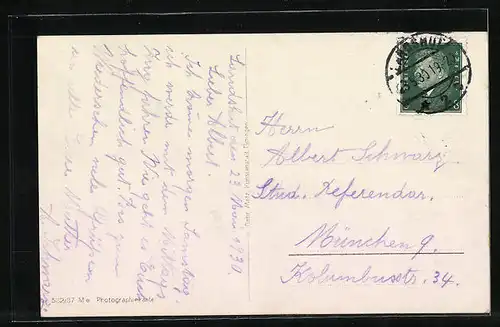 Landshut den 23 Mai 1930
Lieber Albert.
Ich komme morgen Samstag.
ich werde mit dem Mittags
Zug fahren. Wie geht es Euch
hoffendlich gut. Bis zum
Wiedersehen viele Grüßen
an alle Eure Mutter
Herrn
Albert Schwarz
Stud. Referendar.
München 9.
Kolumbusstr. 34.
LANDSHUT
582/37 M e Photographiekarte